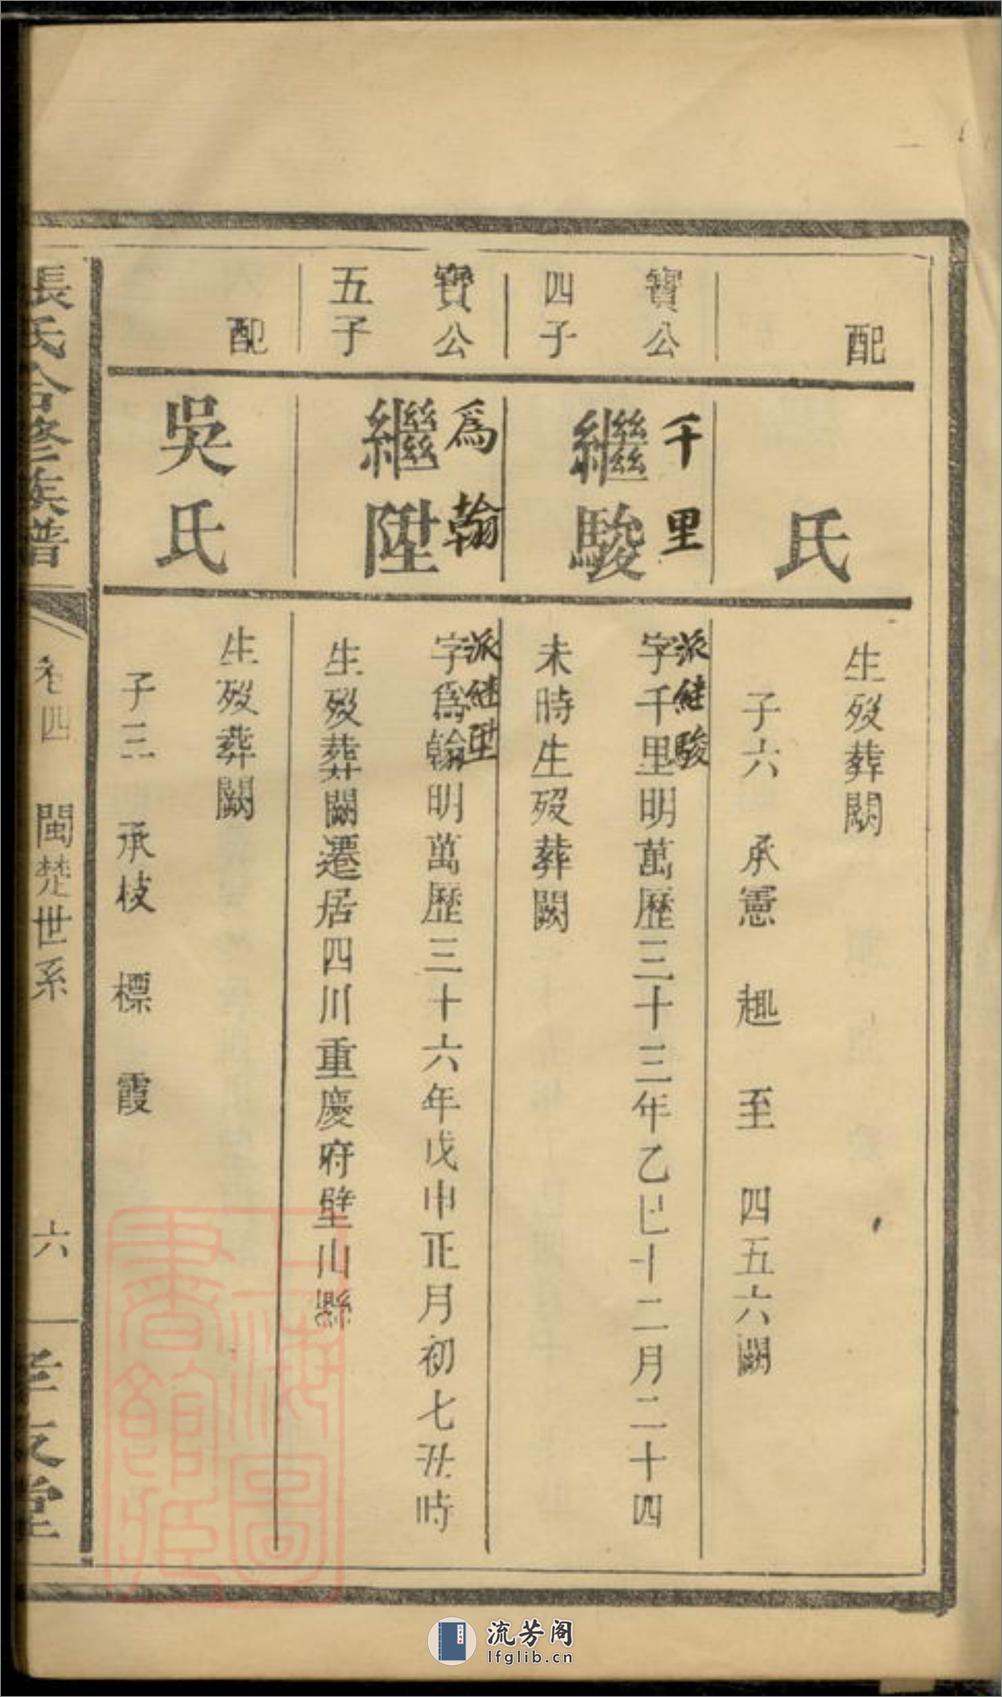 配
氏
生歿葬闕
子六 承憲 趣 至 四五六闕
寶公
四子
千里
繼駿
派継駿
字千里明萬歷三十三年乙巳十二月二十四
未時生歿葬闕
寶公
五子
爲翰
繼陞
派継陞
字爲翰明萬歷三十六年戊申正月初七丑時
生歿葬闕遷居四川重慶府壁山縣
配
吳氏
生歿葬闕
子三 承枝 標 霞
張氏合修族譜
卷四 閩楚世系
六
孝友堂
上海圖書館藏
流芳阁
lfglib.cn